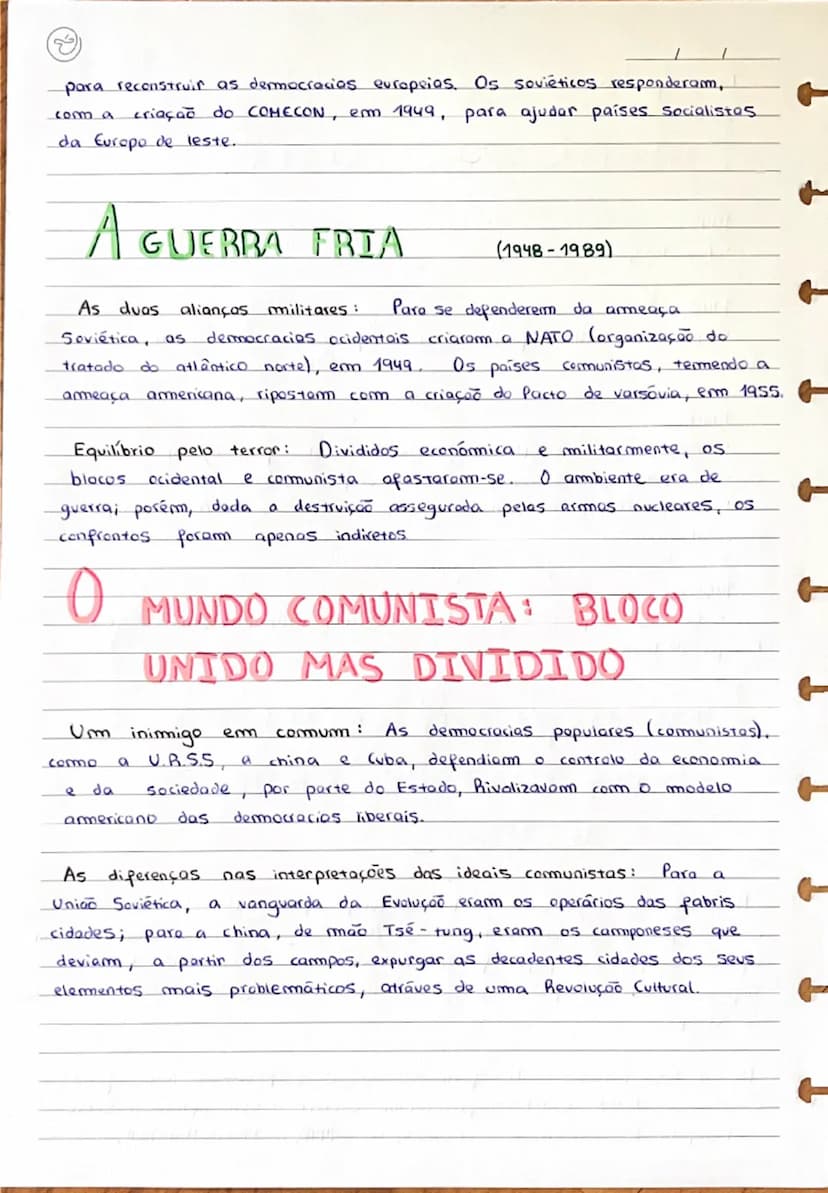 / /
para reconstruir as democracias europeias. Os soviéticos responderam,
com a criação do COMECON, em 1949, para ajudar países socialistas
da Europa de leste.
A GUERRA FRIA (1948-1989)
As duas alianças militares: Para se defenderem da ameaça
Soviética, as democracias ocidentais criaram a NATO (organização do
tratado do atlântico norte), em 1949. Os países comunistas, temendo a
ameaça americana, ripostam com a criação do Pacto de varsóvia, em 1955.
Equilíbrio pelo terror: Divididos económica e militarmente, os
blocos ocidental e comunista afastaram-se. O ambiente era de
guerra; porém, dada a destruição assegurada pelas armas nucleares, os
confrontos foram apenas indiretos
O MUNDO COMUNISTA: BLOCO
UNIDO MAS DIVIDIDO
Um inimigo em comum: As democracias populares (comunistas),
como a U.R.S.S, a china e Cuba, defendiam o controlo da economia
e da sociedade, por parte do Estado, Rivalizavam com o modelo
americano das democracias liberais.
As diferenças nas interpretações das ideais comunistas: Para a
União Soviética, a vanguarda da Evolução eram os operários das fabris
cidades; para a china, de mão Tsé-tung, eram os camponeses que
deviam, a partir dos campos, expurgar as decadentes cidades dos seus
elementos mais problemáticos, atráves de uma Revolução Cultural.